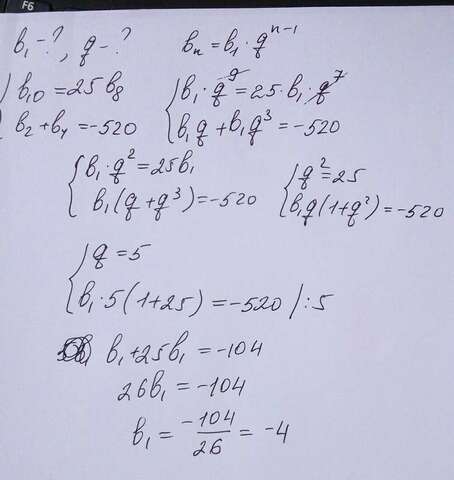 F6
b₁-?, q-?
bₙ=b₁·qⁿ⁻¹
b₁₀=25b₈
b₂+b₄=-520
b₁·q⁹=25·b₁·q⁷
b₁q+b₁q³=-520
b₁·q²=25b₁
b₁(q+q³)=-520
q²=25
b₁q(1+q²)=-520
q=5
b₁·5(1+25)=-520/:5
b₁+25b₁=-104
26b₁=-104
b₁=-104/26=-4